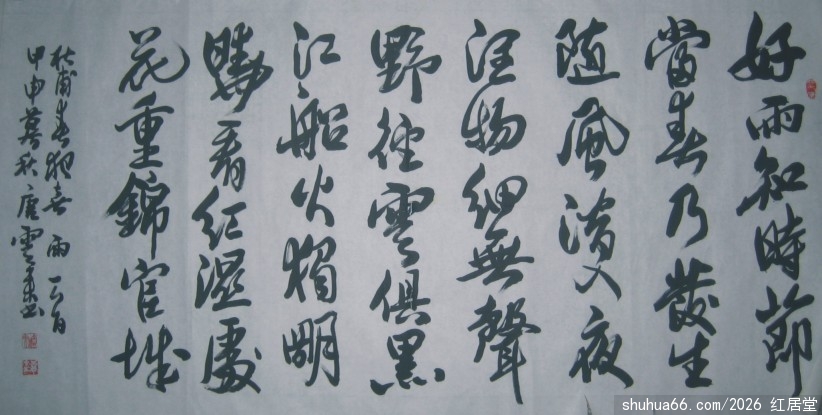 好雨知時節
當春乃發生
隨風潛入夜
潤物細無聲
野徑雲俱黑
江船火獨明
曉看紅濕處
花重錦官城
杜甫春夜喜雨一首
甲申暮秋唐雲書
shuhua66.com/2026 红居堂